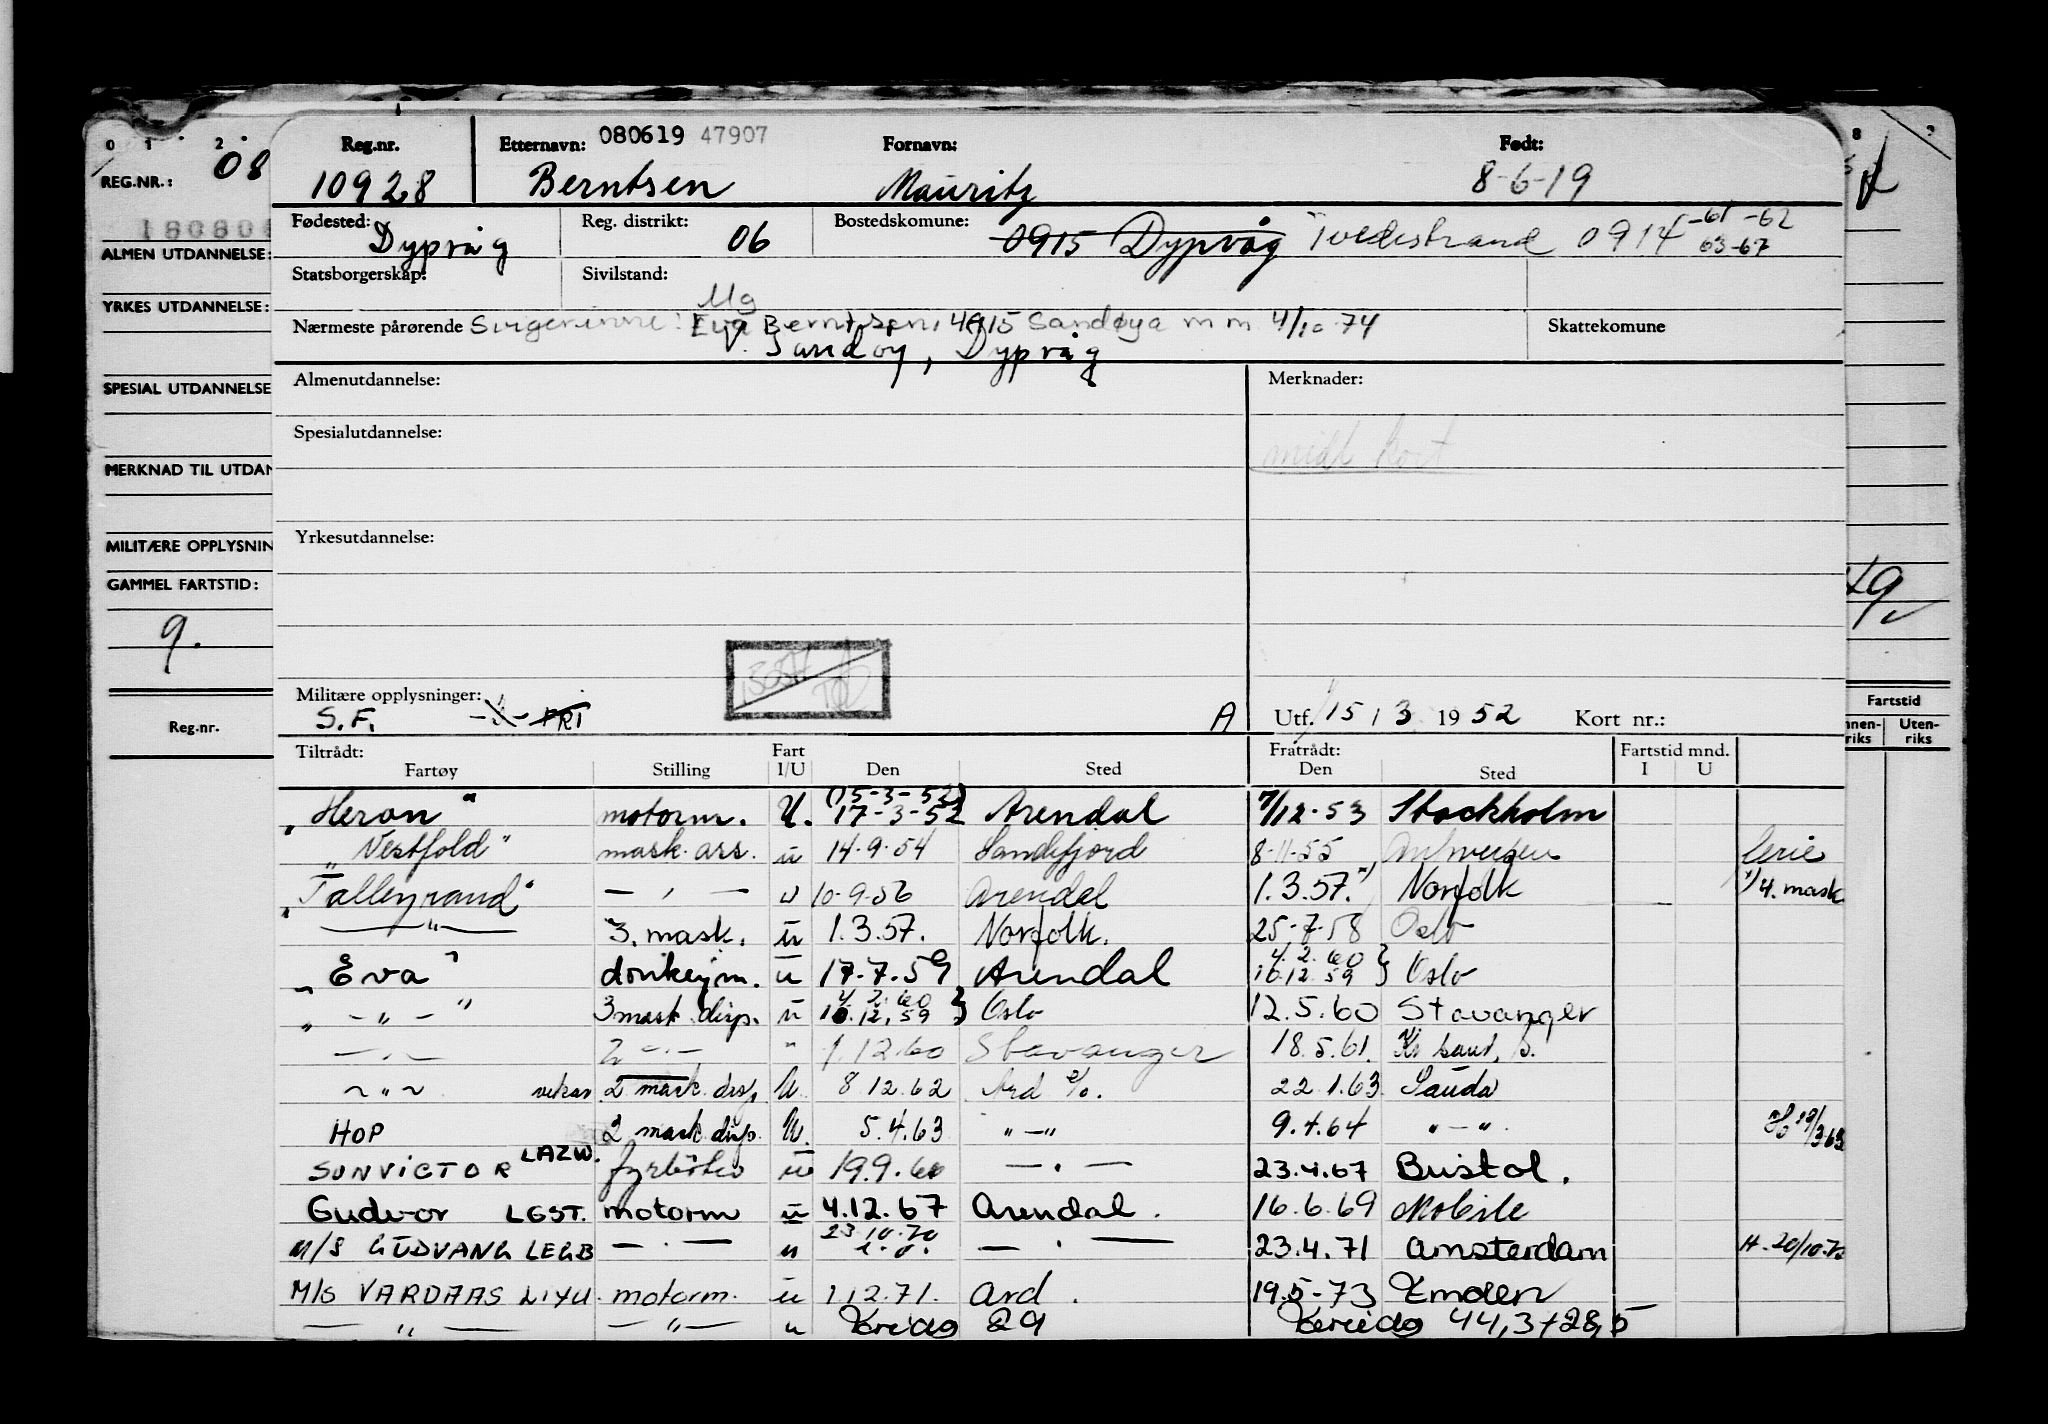 0 1 2
REG.NR.: 08
180808
ALMEN UTDANNELSE:
YRKES UTDANNELSE:
SPESIAL UTDANNELSE
MERKNAD TIL UTDAN
MILITÆRE OPPLYSNIN
GAMMEL FARTSTID:
9.
Reg.nr.
Reg.nr. Etternavn: 080619 47907 Fornavn: Født:
10928 Berntsen Mauritz 8-6-19
Fødested: Reg. distrikt: Bostedskomune:
Dypvåg 06 0915 Dypvåg Tvedestrand 0914 -61 -62
63-67
Statsborgerskap: Sivilstand:
Ug
Nærmeste pårørende Svigerinne: Eva Berntsen, 4915 Sandøya m m 4/10-74 Skattekomune
Sandøy, Dypvåg
Almenutdannelse: Merknader:
Spesialutdannelse:
Yrkesutdannelse:
Militære opplysninger:
S.F. FRI
A Utf. 15 / 3 1952 Kort nr.:
Tiltrådt: Fart Fratrådt: Fartstid mnd.
Fartøy Stilling I/U Den Sted Den Sted I U
(15-3-52)
"Heron" motorm. U. 17-3-52 Arendal 7/12-53 Stockholm
"Vestfold" mask. ass. u 14-9-54 Sandefjord 8-11-55 Antwerpen ferie
"Talleyrand" — " — u 10-9-56 Arendal 1.3.57. Norfolk 4. mask
— " — 3. mask. u 1.3.57. Norfolk. 25-7-58 Oslo
4.2.60
"Eva" donkeym. u 17-7-59 Arendal 10.12.59 } Oslo
4.2.60
" - " - " 3 mask. disp. u 10.12.59 } Oslo 12.5.60 Stavanger
— " — 2 — " — " 1.12.60 Stavanger 18.5.61. Kr sand, S.
~ " ~ vikar 2 mask. disp. U 8.12.62 Ard 22.1.63 Sauda
HOP 2 mask. disp. U. 5.4.63 " — " 9.4.64 " — "
SUNVICTOR LAZW. fyrbøter u 19.9.66 — " — 23.4.67 Bristol.
Gudvor LGST. motorm u 4.12.67 Arendal. 16.6.69 Mobile
23.10.70
M/S GUDVANG LEGB — " — u — " — 23.4.71 Amsterdam H. 20/10-70
M/S VARDAAS LIXU. motorm. u 1.12.71. Ard. 19.5-73 Emden
— " — — " — u feriedg 29 feriedg 44,3+28,5
8
49
Fartstid
Innen-riks Uten-riks